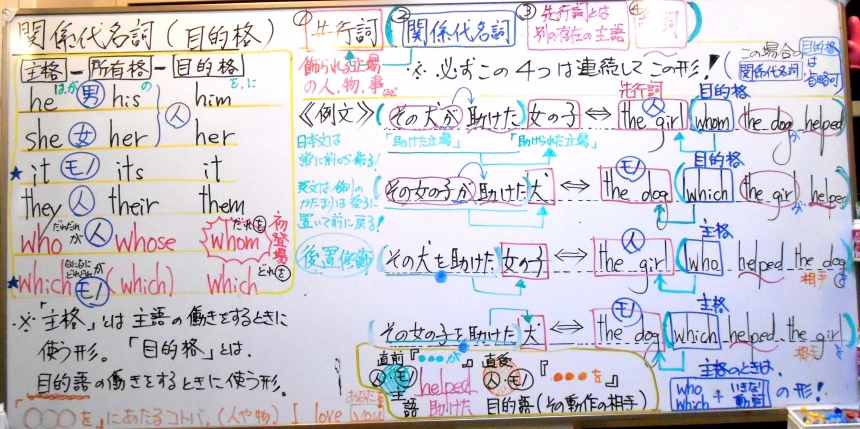 関係代名詞(目的格)
主格-所有格-目的格
he は、が 男 his の him を、に
she 女 her 人 her
it モノ its it
they 人 their them
who だれだれが 人 whose whom だれを 初登場
which なになにが どれどれが モノ (which) which どれを
※「主格」とは主語の働きをするときに
使う形。「目的格」とは、
目的語の働きをするときに使う形。
「○○○を」にあたるコトバ。(人や物) I love you あなたを
① 先行詞 ② 関係代名詞 ③ 先行詞とは別の存在の主語 ④ 動詞
飾られる立場の人、物、事
※ 必ずこの4つは連続してこの形!
この場合の目的格
関係代名詞は省略可
《例文》(その犬が助けた)女の子 ⇔ 先行詞 人 the girl 目的格 (whom the dog が helped)
「助けた立場」 「助けられた立場」
日本文は常に前から飾る!
(その女の子が助けた)犬 ⇔ モノ the dog 目的格 (which the girl が helped)
英文は飾りのかたまりは後ろに置いて前に戻る!
後置修飾
(その犬を助けた)女の子 ⇔ 人 the girl 主格 (who helped the dog) 相手を
(その女の子を助けた)犬 ⇔ モノ the dog (which helped the girl) 相手を
直前『●●●が 直後『●●●を』
人 モノ helped 人・モノ
主語 助けた 目的語(その動作の相手)
主格のときは、
who which + いきなり動詞 の形!